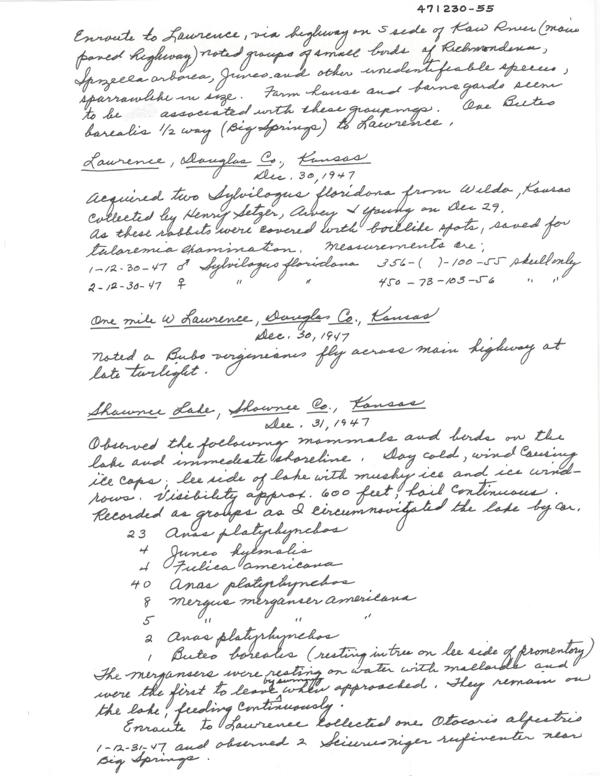 471230-55
Enroute to Lawrence, via highway on S side of Kaw River (main
paved highway) noted groups of small birds of Richmondena,
Spizella arborea, Junco and other unidentifiable species,
sparrowlike in size. Farm house and barnyards seem
to be associated with these groupings. One Buteo
borealis 1/2 way (Big Springs) to Lawrence.
Lawrence, Douglas Co., Kansas
Dec. 30, 1947
Acquired two Sylvilagus floridana from Wilda, Kansas
collected by Henry Setzer, Avvey & Young on Dec 29.
As these rabbits were covered with boillike spots, saved for
tularemia examination. Measurements are:
1-12-30-47 ♂ Sylvilagus floridana 356-( )-100-55 skull only
2-12-30-47 ♀ " " 450-73-103-56 " "
One mile W Lawrence, Douglas Co., Kansas
Dec. 30, 1947
Noted a Bubo virginianus fly across main highway at
late twilight.
Shawnee Lake, Shawnee Co., Kansas
Dec. 31, 1947
Observed the following mammals and birds on the
lake and immediate shoreline. Day cold, wind causing
ice caps; lee side of lake with mushy ice and ice wind-
rows. Visibility approx. 600 feet, hail continuous.
Recorded as groups as I circumnavigated the lake by car.
23 Anas platyrhynchos
4 Junco hyemalis
4 Fulica americana
40 Anas platyrhynchos
8 Mergus merganser americana
5 " " "
2 Anas platyrhynchos
1 Buteo borealis (resting in tree on lee side of promentory)
The mergansers were resting on water with mallards and
were the first to leave by swimming when approached. They remain on
the lake, feeding continuously.
Enroute to Lawrence collected one Otocoris alpestris
1-12-31-47 and observed 2 Sciurus niger rufiventer near
Big Springs.